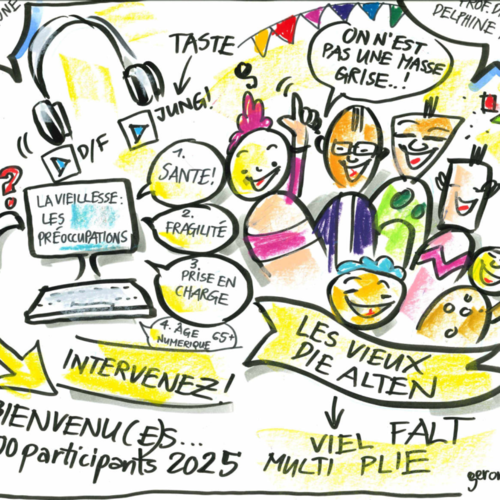 PROF. D
DELPHINE
TASTE
JUNG!
D/F
ON N'EST
PAS UNE MASSE
GRISE...!
??
LA VIEILLESSE:
LES
PRÉOCCUPATIONS
1.
SANTÉ!
2.
FRAGILITÉ
3.
PRISE EN
CHARGE
4. ÂGE
NUMERIQUE 65+
INTERVENEZ!
BIENVENU(E)S...
00 participants 2025
LES VIEUX
DIE ALTEN
VIEL FALT
MULTI PLIE
geron